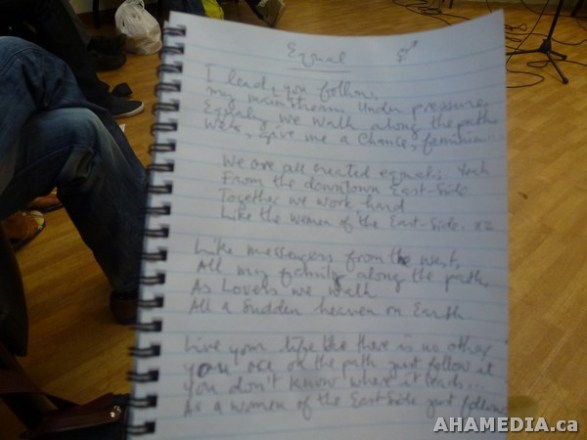 Equal
I lead, you follow,
my mainstream Under pressure,
Equaly we walk along the path
give me a chance, feminine
We are all created equal, Yeah
From the downtown East-Side
Together we work hard
Like the women of the East-Side. x2
Like messengers from the west,
All my family along the path,
As Lovers we walk
All a Sudden heaven on Earth
Live your life like there is no other
you are on the path just follow it
you don't know where it leads..
As a women of the East-Side just follow
AHAMEDIA.ca